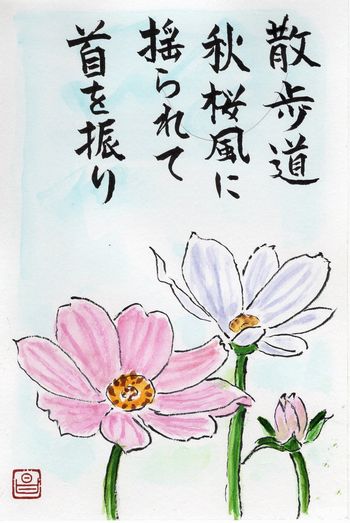 散歩道
秋桜風に
揺られて
首を振り